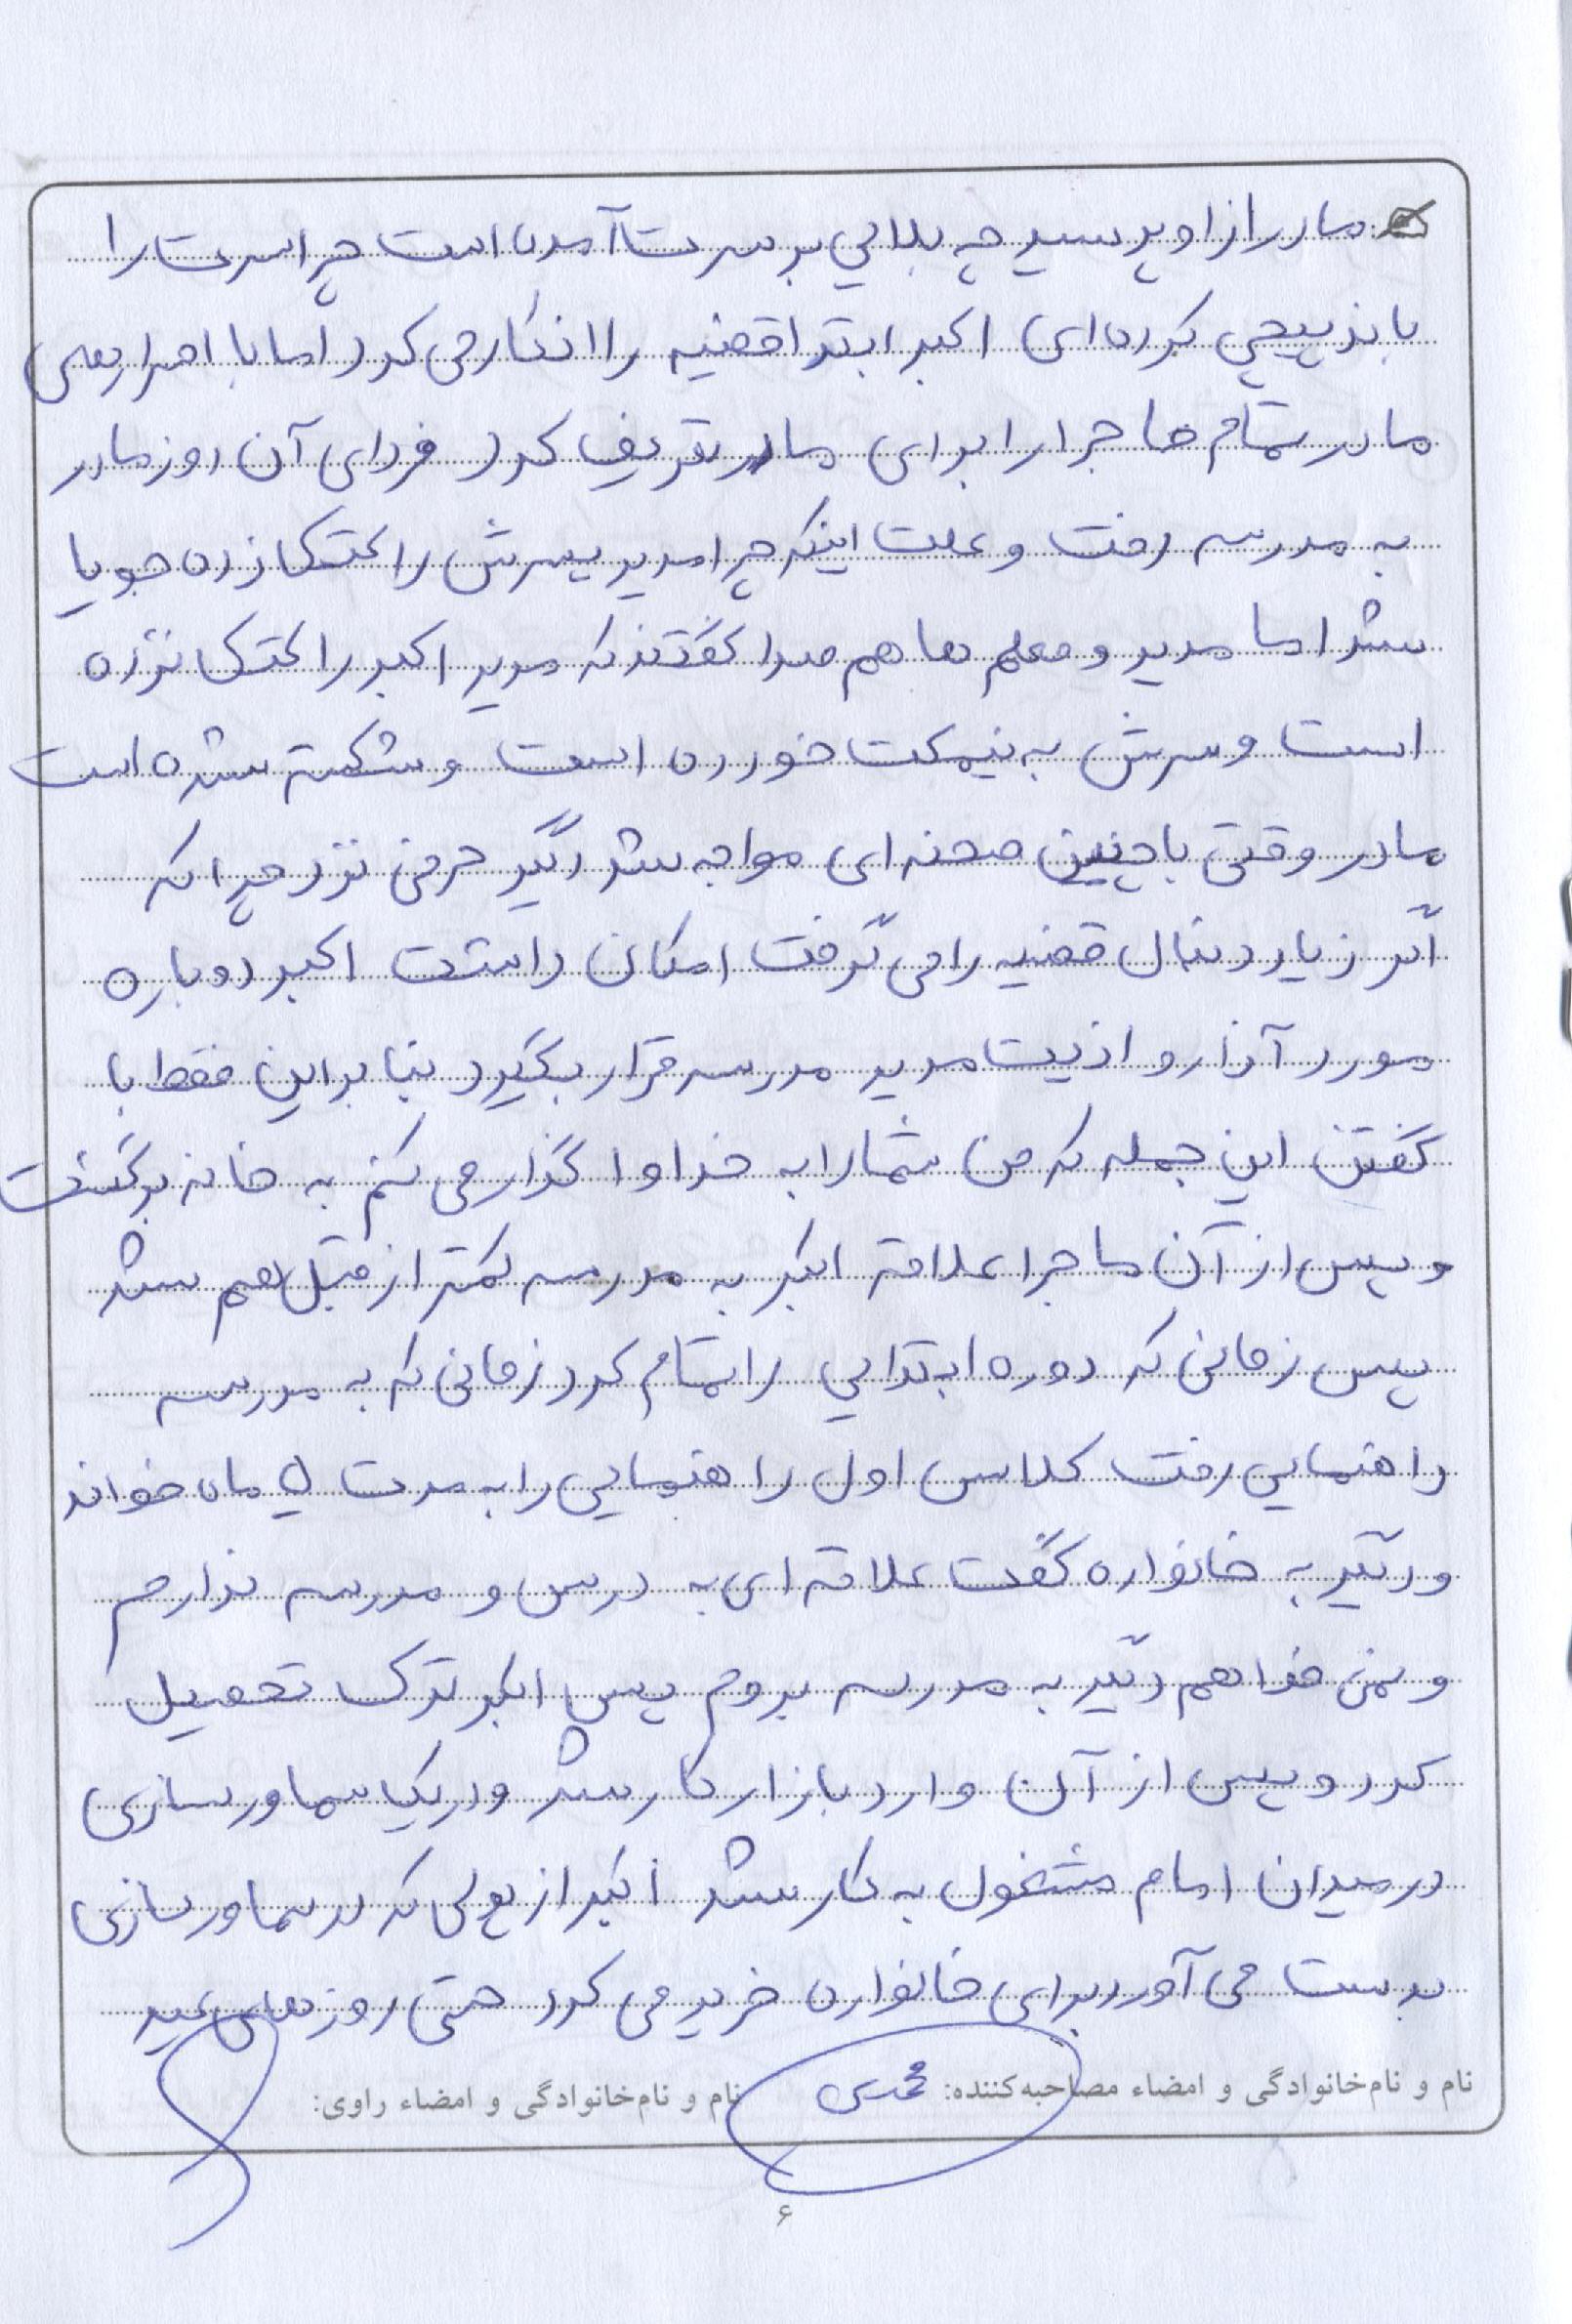 مادر از او پرسید چه بلایی بر سرت آمده است چرا سرت را
باندپیچی کرده‌ای اکبر ابتدا قضیه را انکار می کرد اما با اصرارهای
مادر تمام ماجرا را برای مادر تعریف کرد فردای آن روز مادر
به مدرسه رفت و علت اینکه چرا مدیر پسرش را کتک زده جویا
شد اما مدیر و معلم ها هم صدا گفتند که مدیر اکبر را کتک نزده
است و سرش به نیمکت خورده است و شکسته شده است
مادر وقتی با چنین صحنه ای مواجه شد دیگر حرفی نزد چرا که
اگر زیاد دنبال قضیه را می گرفت امکان داشت اکبر دوباره
مورد آزار و اذیت مدیر مدرسه قرار بگیرد بنابراین فقط با
گفتن این جمله که من شما را به خدا واگذار می کنم به خانه برگشت
و پس از آن ماجرا علاقه اکبر به مدرسه کمتر از قبل هم شد
پس زمانی که دوره ابتدایی را تمام کرد زمانی که به مدرسه
راهنمایی رفت کلاس اول راهنمایی را به مدت ۵ ماه خواند
و دیگر به خانواده گفت علاقه ای به درس و مدرسه ندارم
و نمی خواهم دیگر به مدرسه بروم پس اکبر ترک تحصیل
کرد و پس از آن وارد بازار کار شد و در یک سماورسازی
در میدان امام مشغول به کار شد اکبر از پولی که در سماورسازی
بدست می آورد برای خانواده خرید می کرد حتی روزهای عید
نام و نام‌خانوادگی و امضاء مصاحبه‌کننده: محمدی نام و نام‌خانوادگی و امضاء راوی:
۶